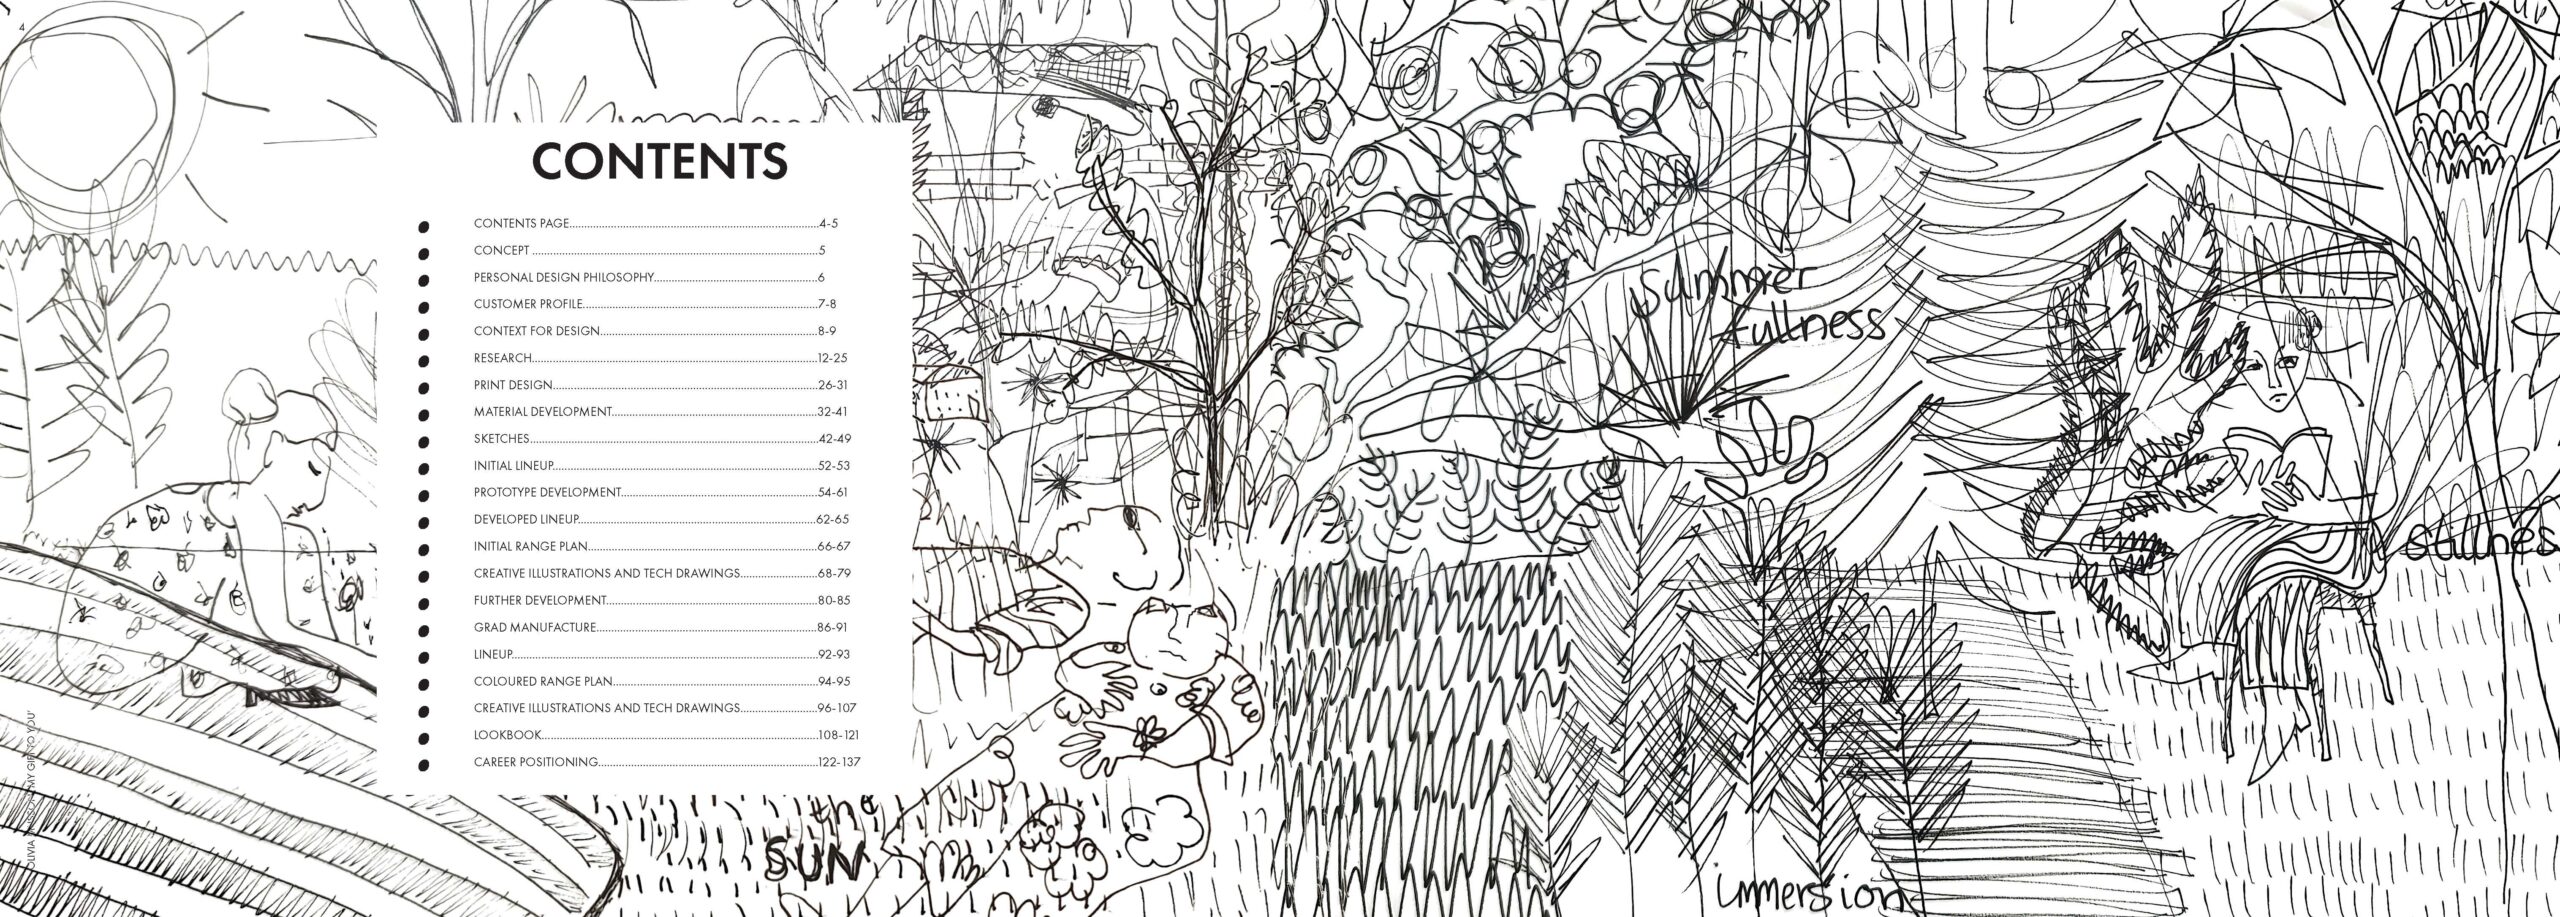 4
CONTENTS
CONTENTS PAGE........................................4-5
CONCEPT ........................................5
PERSONAL DESIGN PHILOSOPHY........................................6
CUSTOMER PROFILE........................................7-8
CONTEXT FOR DESIGN........................................8-9
RESEARCH........................................12-25
PRINT DESIGN........................................26-31
MATERIAL DEVELOPMENT........................................32-41
SKETCHES........................................42-49
INITIAL LINEUP........................................52-53
PROTOTYPE DEVELOPMENT........................................54-61
DEVELOPED LINEUP........................................62-65
INITIAL RANGE PLAN........................................66-67
CREATIVE ILLUSTRATIONS AND TECH DRAWINGS........................................68-79
FURTHER DEVELOPMENT........................................80-85
GRAD MANUFACTURE........................................86-91
LINEUP........................................92-93
COLOURED RANGE PLAN........................................94-95
CREATIVE ILLUSTRATIONS AND TECH DRAWINGS........................................96-107
LOOKBOOK........................................108-121
CAREER POSITIONING........................................122-137
summer
fullness
stillness
the
SUN
immersion
OLIVIA MY GIFT TO YOU'